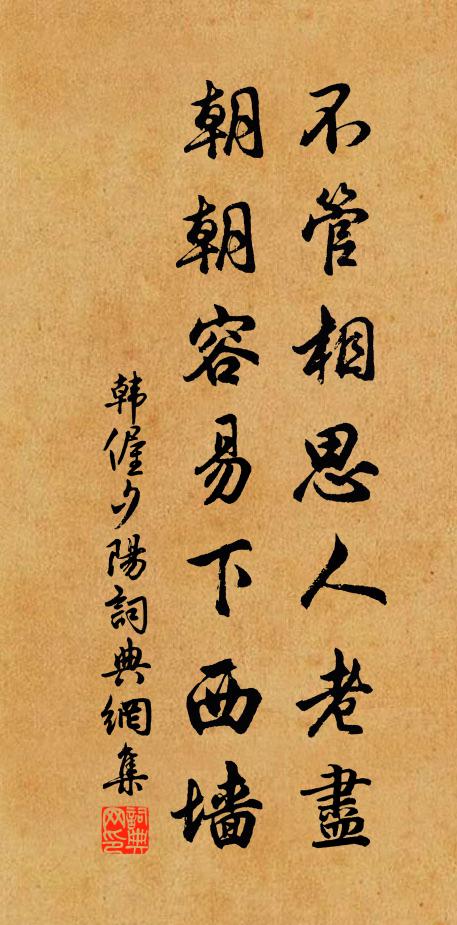 不管相思人老盡
朝朝容易下西墙
韩偓夕陽詞典網集
詞典网印